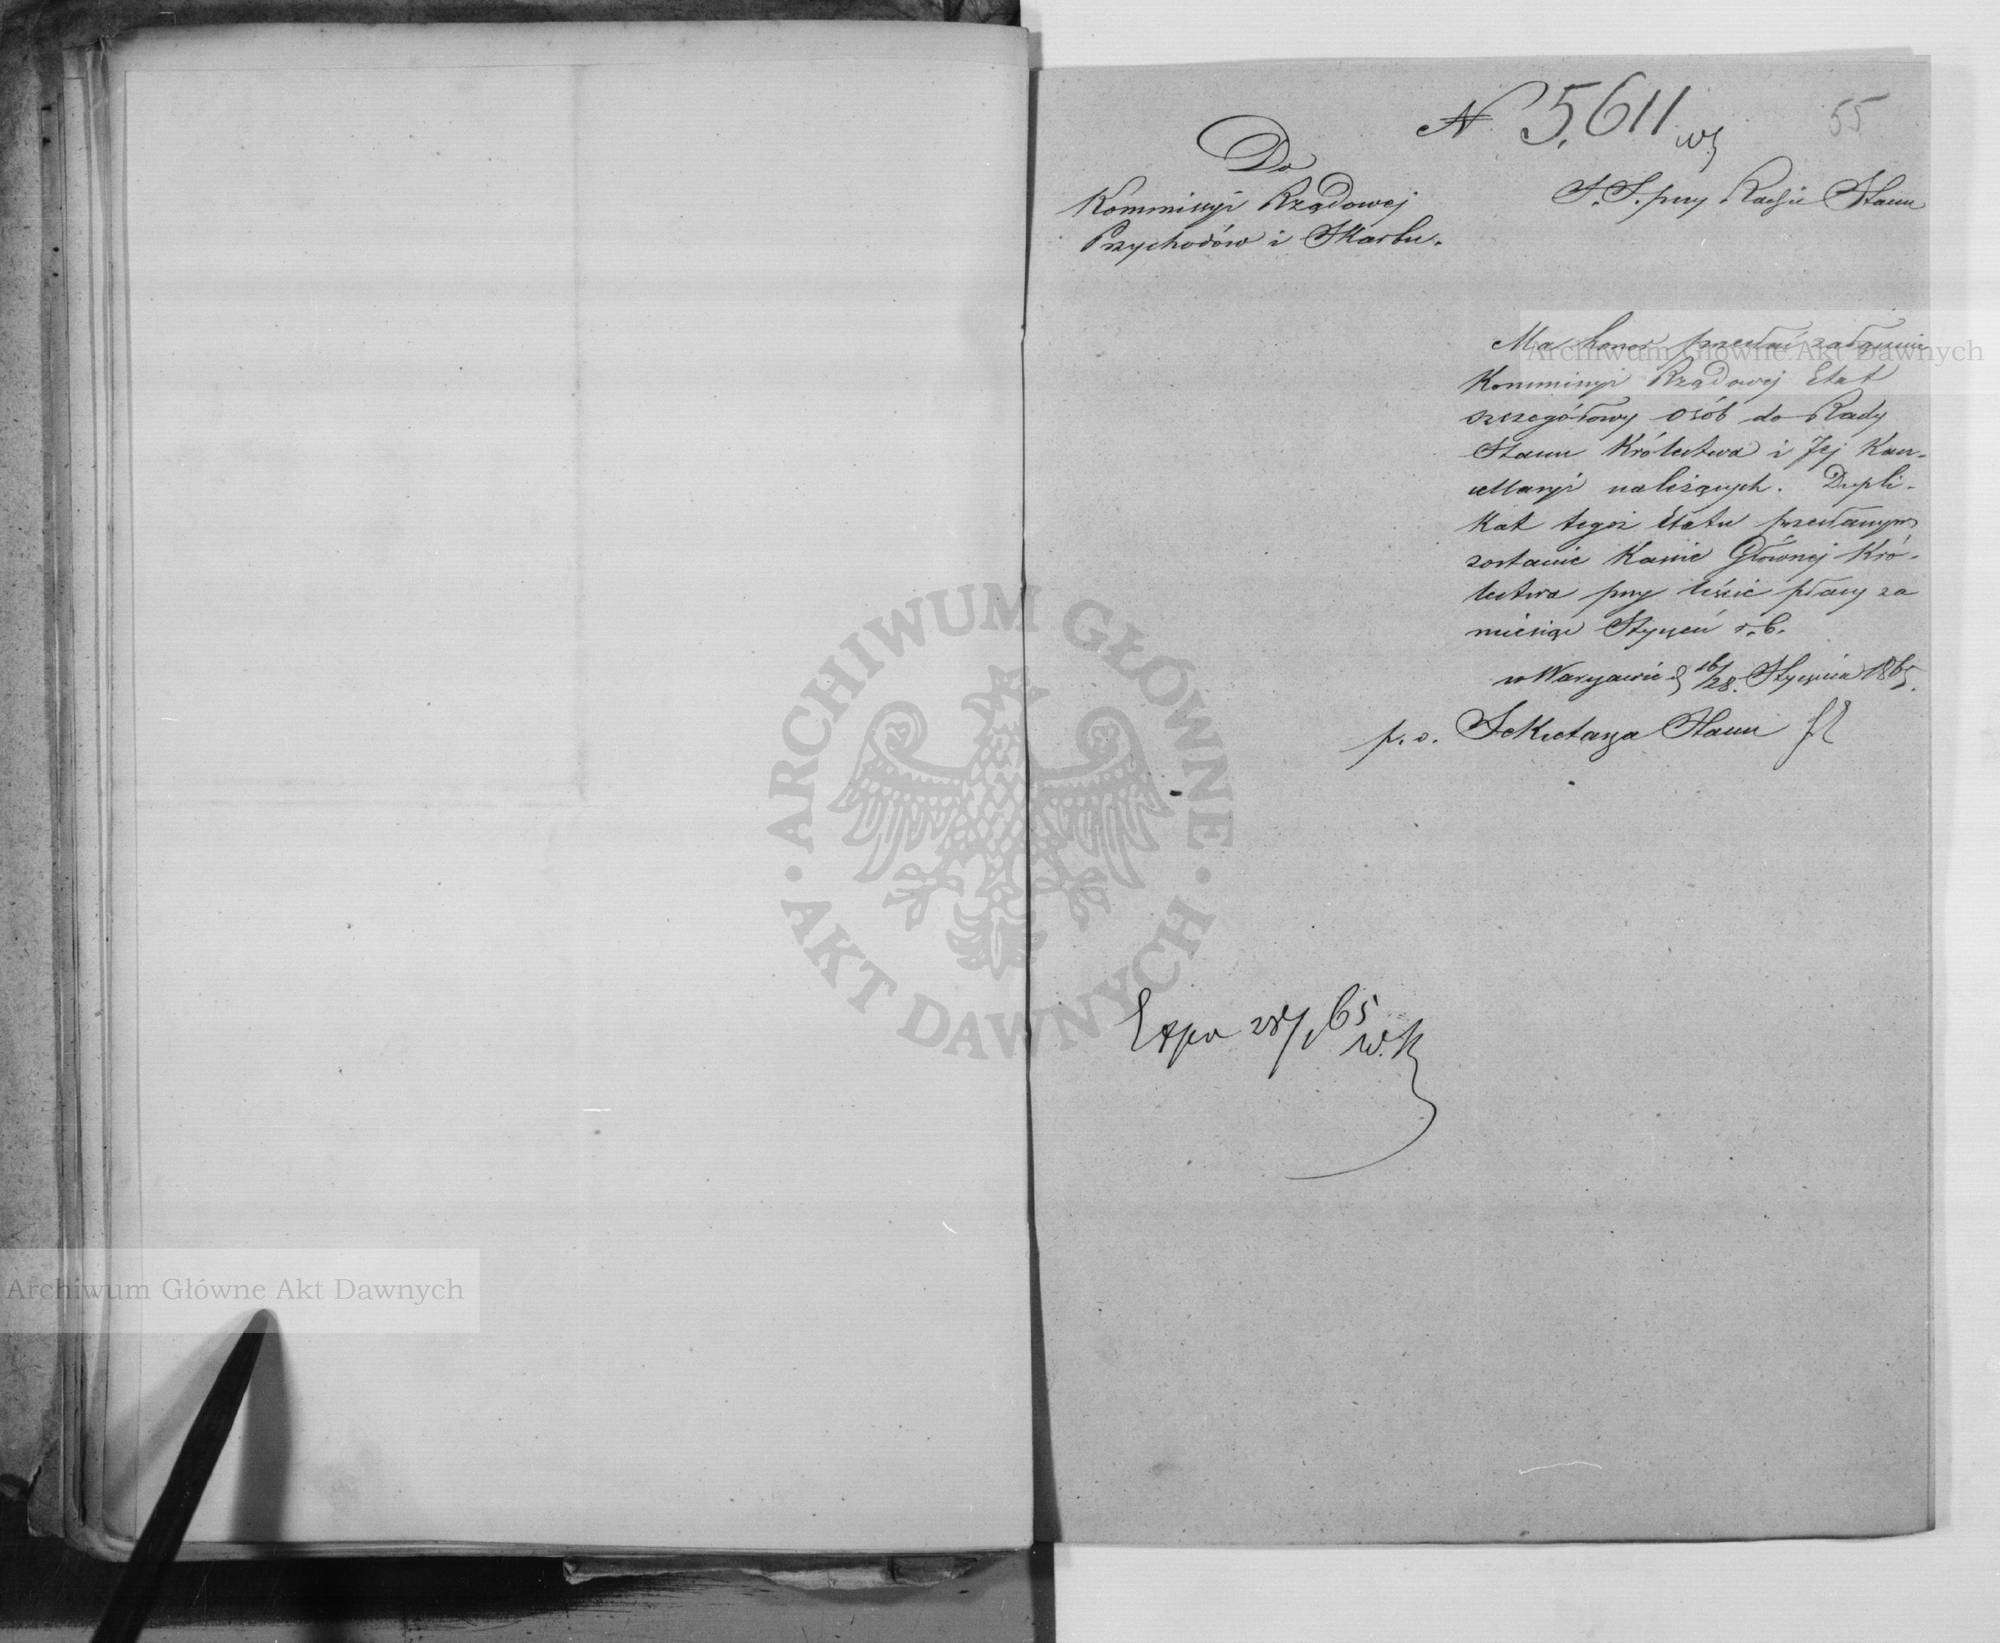 N 5,611
55
Do
Kommissyi Rządowej
Przychodów i Skarbu.
S. S. przy Radzie Stanu
Ma honor przesłać załącznie
Kommissyi Rządowej Etat
szczegółowy osób do Rady
Stanu Królestwa i Jej Kan-
cellaryi należących. Dupli-
kat tegoż Etatu przesłanym
zostanie Kassie Głównej Kró-
lestwa przy liście płacy za
miesiąc Styczeń r. b.
w Warszawie d 16/28. Stycznia 1865.
p. o. Sekretarza Stanu
Expu 28/1 65
W. K
ARCHIWUM GŁÓWNE
AKT DAWNYCH
Archiwum Główne Akt Dawnych
Archiwum Główne Akt Dawnych